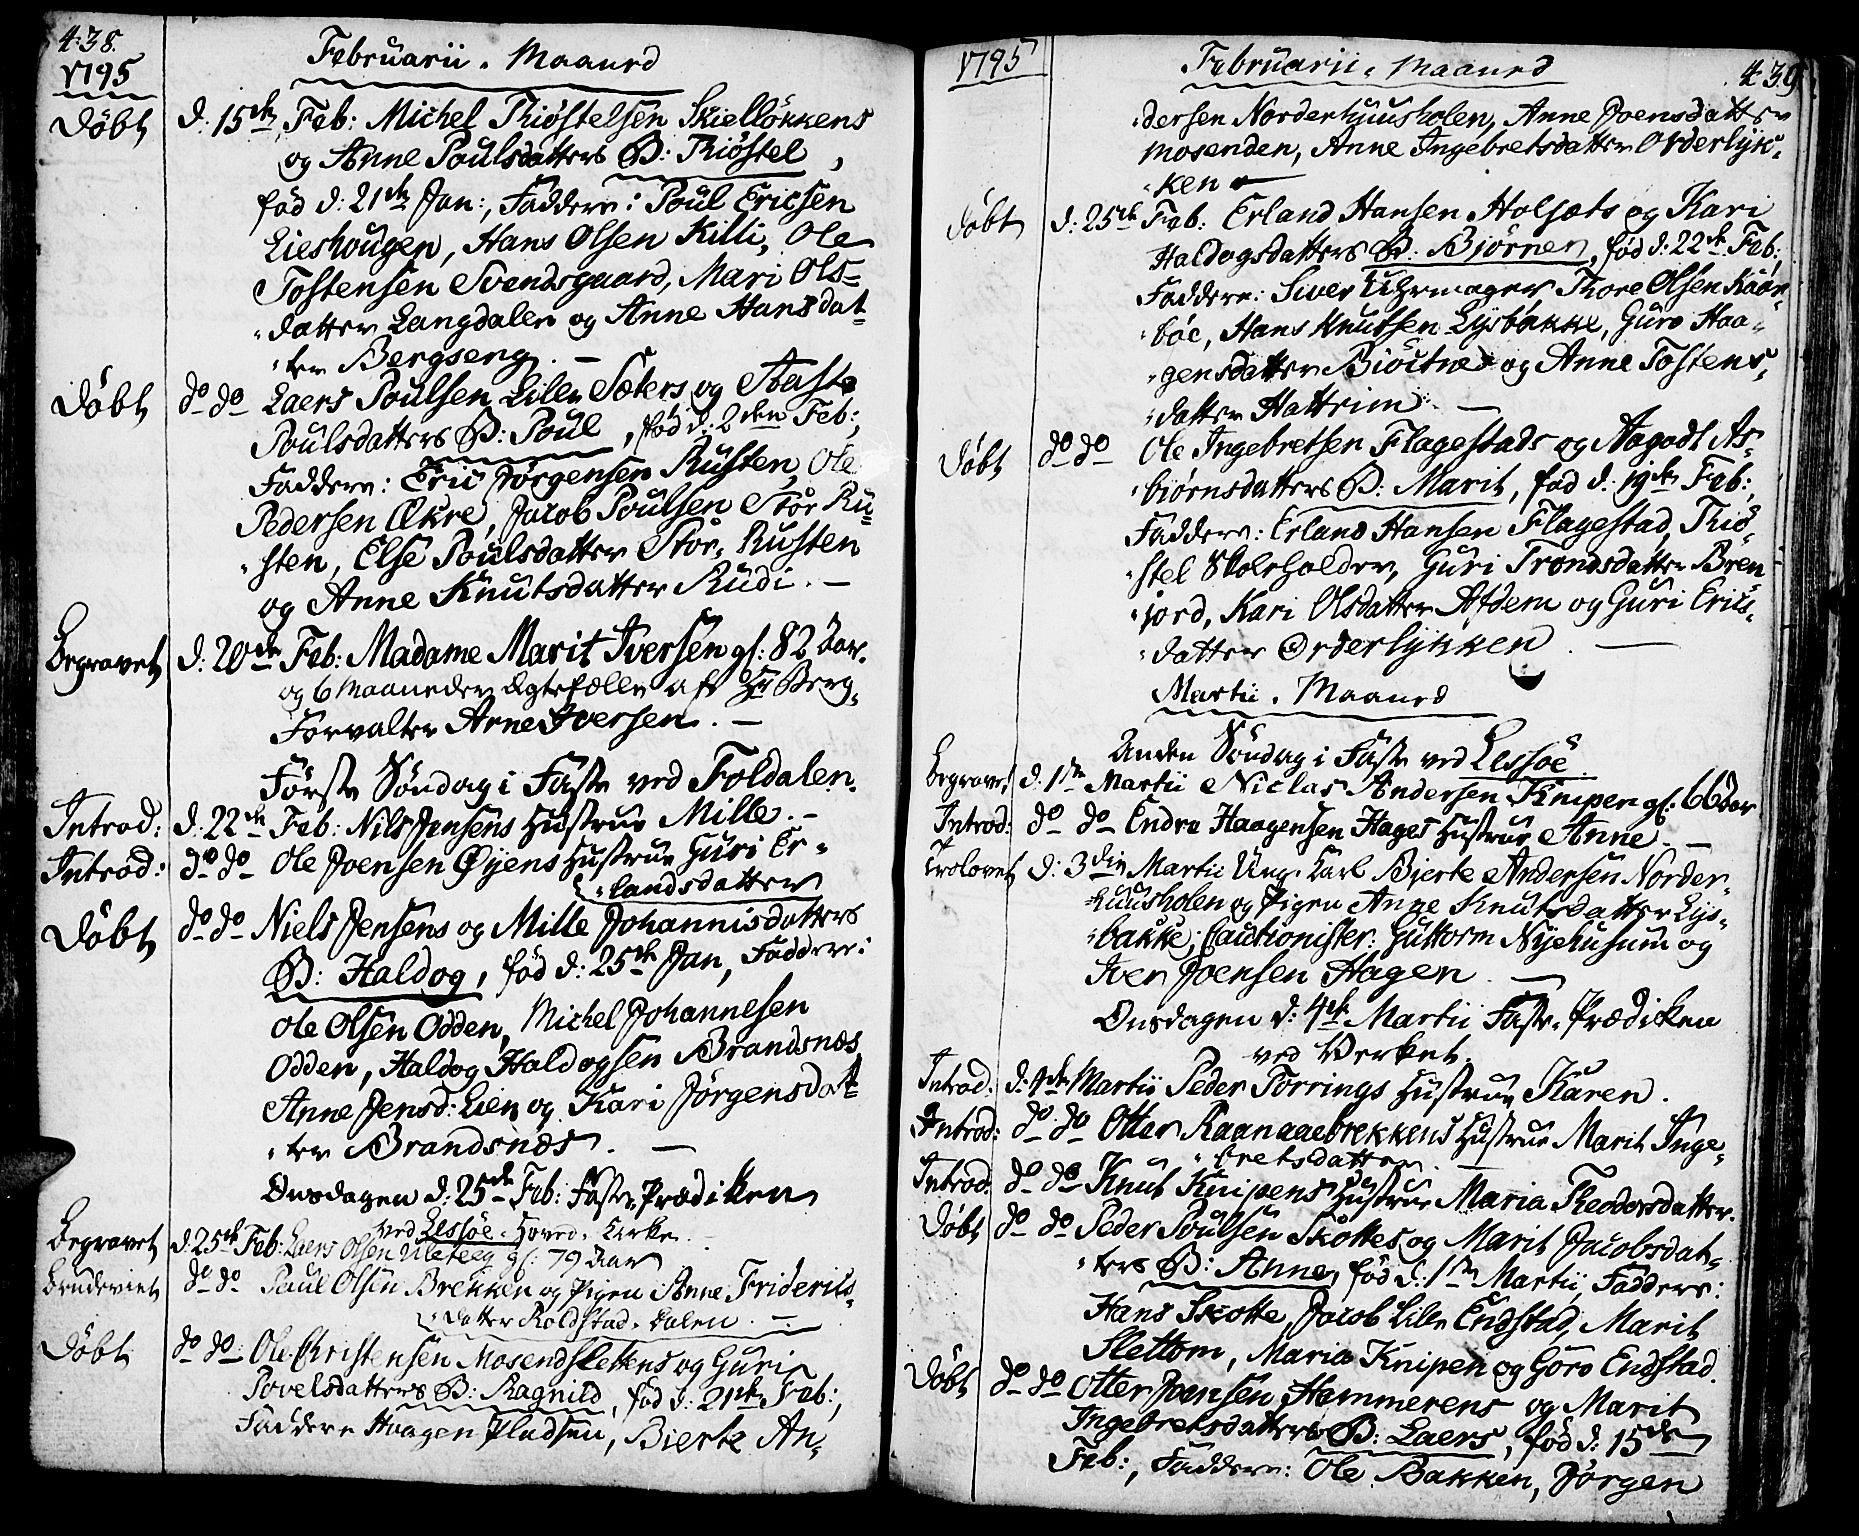 438.
1795
Februarii. Maaned
Døbt d: 15de Feb: Michel Thiøstelsen Skielløkkens
og Anne Poulsdatters B: Thiøstel,
fød d: 21de Jan:, Faddere: Poul Ericsen
Lieshougen, Hans Olsen Killi, Ole
Tostensen Svendsgaard, Mari Ols-
datter Langdalen og Anne Hansdat-
ter Bergseng. —
Døbt do do Laers Poulsen Lille Sæters og Aaste
Poulsdatters B: Poul, fød d: 2den Feb:,
Faddere: Eric Jørgensen Rusten, Ole
Pedersen Økre, Jacob Poulsen Stor Ru-
sten, Else Poulsdatter Stor-Rusten
og Anne Knutsdatter Rudi. —
Begravet d: 20de Feb: Madame Marit Iversen gl: 82 Aar.
og 6 Maaneder Ægtefælle af Hr Berg-
Forvalter Arne Iversen. —
Første Søndag i Faste ved Foldalen.
Introd: d: 22de Feb: Nils Jensens Hustrue Mille. —
Introd: do do Ole Joensen Øyens Hustrue Guri Er-
landsdatter
Døbt do do Niels Jensens og Mille Johannisdatters
B: Haldog, fød d: 25de Jan, Faddere:
Ole Olsen Odden, Michel Johannesen
Odden, Haldog Haldogsen Brandsnæs
Anne Jensd: Lien og Kari Jørgensdat-
ter Brandsnæs. —
Onsdagen d: 25de Feb: Faste Prædiken
ved Lessøe Hoved-Kirke.
Begravet d: 25de Feb: Laers Olsen Uleteeg gl: 79 Aar
Brudeviet do do Paul Olsen Brekken og Pigen Anne Frideriks-
datter Roldstad-Dalen. —
Døbt do do: Ole Christensen Mosendslettens og Guri
Povelsdatters B: Ragnild, fød d: 21de Feb:,
Faddere Haagen Pladsen, Bierte An-
1795
Februarii. Maaned
439.
dersen Norderhuusholen, Anne Joensdatter
Mosenden, Anne Ingebretsdatter Orderlyk-
ken
Døbt d: 25de Feb: Erland Hansen Holsæts og Kari
Haldogsdatters B: Bjørner, fød d: 22de Feb:,
Faddere: Siver Uhrmager, Thore Olsen Kaar-
bøe, Hans Knutsen Lysbakke, Guro Haa-
gensdatter Biøitnes og Anne Tostens-
datter Hattrim. —
Døbt do do Ole Ingebretsen Flagestads og Aagodt As-
biørnsdatters B: Marit, fød d: 19de Feb:,
Faddere: Erland Hansen Flagestad, Thiø-
stel Skoleholder, Guri Trondsdatter Bren-
jord, Kari Olsdatter Afdem og Guri Erics-
datter Orderlykken. —
Martii. Maaned
Anden Søndag i Faste ved Lessøe.
Begravet d: 1ste Martii Niclas Andersen Knipen gl: 66 Aar
Introd: do do Endre Haagensen Hages Hustrue Anne. —
Trolovet d: 3die Martii Ung-Karl Bjerte Andersen Norder-
huusholen og Pigen Anne Knutsdatter Lys-
bakke; Cautionister: Guttorm Nyehusum og
Iver Joensen Hagen. —
Onsdagen d: 4de Martii Faste-Prædiken
ved Verket.
Introd: d: 4de Martii Peder Torrings Hustrue Karen.
Introd: do do Otter Raanaaebrekkens Hustrue Marit Inge-
bretsdatter. —
Introd: do do Knut Knipens Hustrue Maria Theodorsdatter.
Døbt do do Peder Poulsen Skottes og Marit Jacobsdat-
ters B: Anne, fød d: 1ste Martii, Faddere:
Hans Skotte, Jacob Lille Endstad, Marit
Slettom, Maria Knipen og Gøro Endstad.
Døbt do do Otter Joensen Hammerens og Marit
Ingebretsdatters B: Laers, fød d: 15de
Feb:, Faddere: Ole Bakken, Jørgen